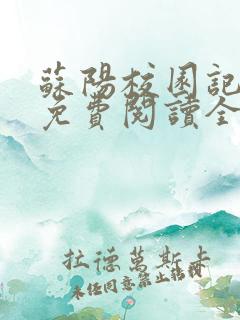 蘇陽校園記
免費閱讀全
拉德萬斯卡
未經同意禁止轉載